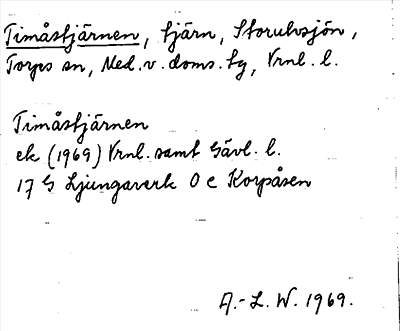 Timåstjärnen, tjärn, Storulvsjön,
Torps sn, Med. v. doms. tg, Vrnl. l.
Timåstjärnen
ek (1969) Vrnl. samt Gävl. l.
17 G Ljungaverk 0 c Korpåsen
A.-L. W. 1969.